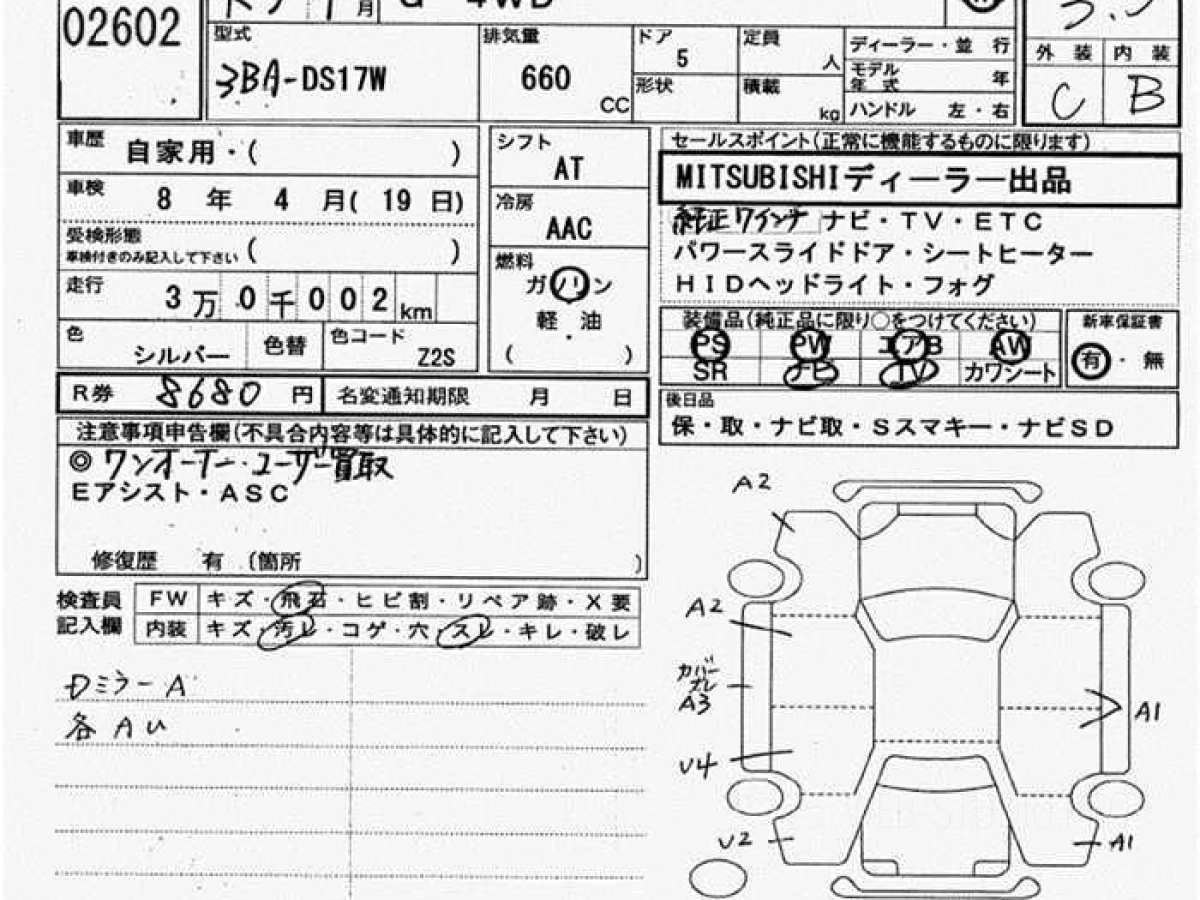 02602
G 4WD
月
型式
3BA-DS17W
排気量
660
CC
ドア
5
形状
定員
人
積載
kg
ディーラー・並 行
モデル年式 年
ハンドル 左・右
外 装 内 装
C B
車歴
自家用・( )
車検
8 年 4 月( 19 日)
受検形態
車検付きのみ記入して下さい ( )
走行
3万0千002km
色
シルバー
色替
色コード
Z2S
シフト
AT
冷房
AAC
燃料
ガソリン
軽・油
( )
セールスポイント(正常に機能するものに限ります)
MITSUBISHIディーラー出品
純正7インチ ナビ・TV・ETC
パワースライドドア・シートヒーター
HIDヘッドライト・フォグ
装備品(純正品に限り○をつけてください)
PS PW エアB AW
SR ナビ TV カワシート
新車保証書
有・無
R券 8680 円
名変通知期限 月 日
後日品
保・取・ナビ取・Sスマキー・ナビSD
注意事項申告欄(不具合内容等は具体的に記入して下さい)
◎ワンオーナー・ユーザー買取
Eアシスト・ASC
修復歴 有 〔箇所 〕
検査員
記入欄
FW キズ・飛石・ヒビ割・リペア跡・X要
内装 キズ・汚レ・コゲ・穴・スレ・キレ・破レ
Dミラー A
各 A U
A2
A2
カバー
ズレ
A3
U4
U2
A1
A1